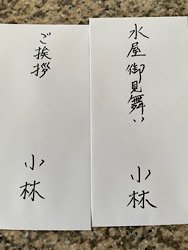 水屋御見舞い
小林
ご挨拶
小林